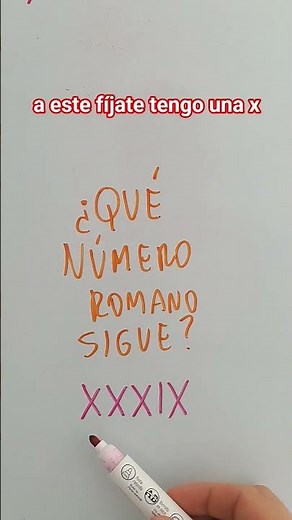 a este fíjate tengo una x
¿QUÉ
NÚMERO
ROMANO
SIGUE?
XXXIX